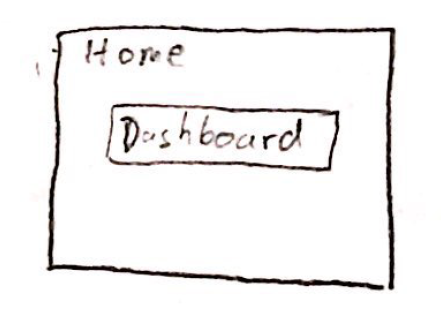 Home
Dashboard